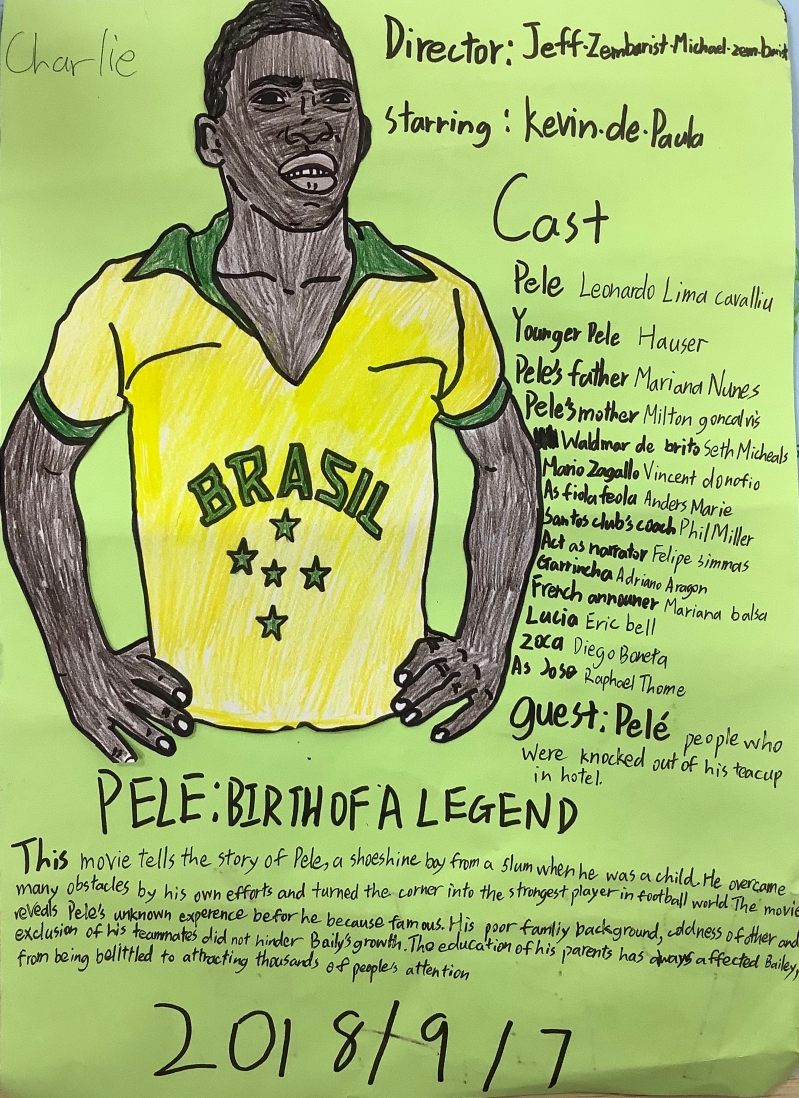 Charlie
Director: Jeff·Zembarist·Michael·zem·barist
starring: kevin·de·Paula
Cast
Pele Leonardo Lima cavalliu
Younger Pele Hauser
Pele's father Mariana Nunes
Pele's mother Milton goncalvis
Waldmar de brito Seth Micheals
Mario Zagallo Vincent donofio
As fiola feola Anders Marie
Santos club's coach Phil Miller
Act as narrator Felipe simmas
Garrincha Adriano Aragon
French announer Mariana balsa
Lucia Eric bell
zoca Diego Boneta
As Jose Raphael Thome
guest: Pelé people who
were knocked out of his teacup
in hotel.
BRASIL
PELE: BIRTH OF A LEGEND
This movie tells the story of Pele, a shoeshine boy from a slum when he was a child. He overcame
many obstacles by his own efforts and turned the corner into the strongest player in football world The movie
reveals Pele's unknown experence befor he because famous. His poor famliy background, coldness of other and
exclusion of his teammates did not hinder Baily's growth. The education of his parents has always affected Bailey,
from being belittled to attracting thousands of people's attention
2018/9/7